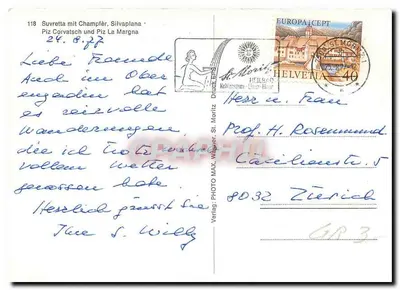 118 Suvretta mit Champfèr, Silvaplana
Piz Corvatsch und Piz La Margna
24.8.77
Liebe Freunde
Auch im Ober
engadin hat
es reizvolle
Wanderungen
die ich trotz
vollem Wetter
genossen habe.
Herzlich grüsst Sie
Ihre S. Willy
Verlag: PHOTO MAX, Wagner, St. Moritz
EUROPA CEPT
HELVETIA 40
St. Moritz
Herrn u. Frau
Prof. H. Rosenmund
Cäcilienstr. 5
8032 Zürich
GR 3